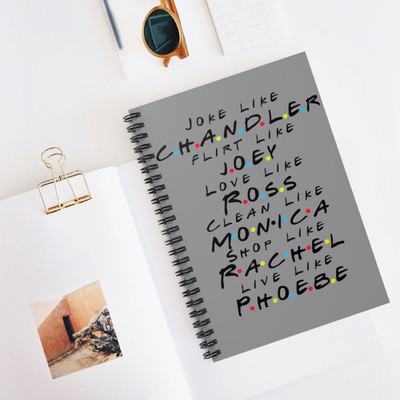 JOKE LIKE
C•H•A•N•D•L•E•R
FLIRT LIKE
J•O•E•Y
LOVE LIKE
R•O•S•S
CLEAN LIKE
M•O•N•I•C•A
SHOP LIKE
R•A•C•H•E•L
LIVE LIKE
P•H•O•E•B•E